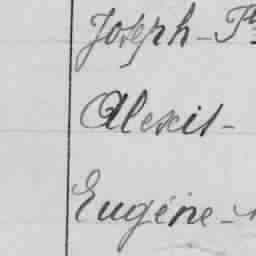 Joseph -
Alexis -
Eugéne -